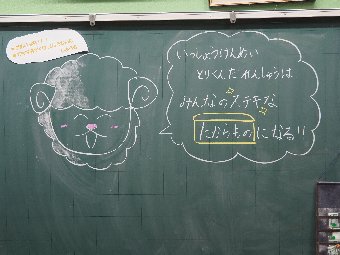 いっしょうけんめい
とりくんだ れんしゅうは
みんなのステキな
たからもの になる!!